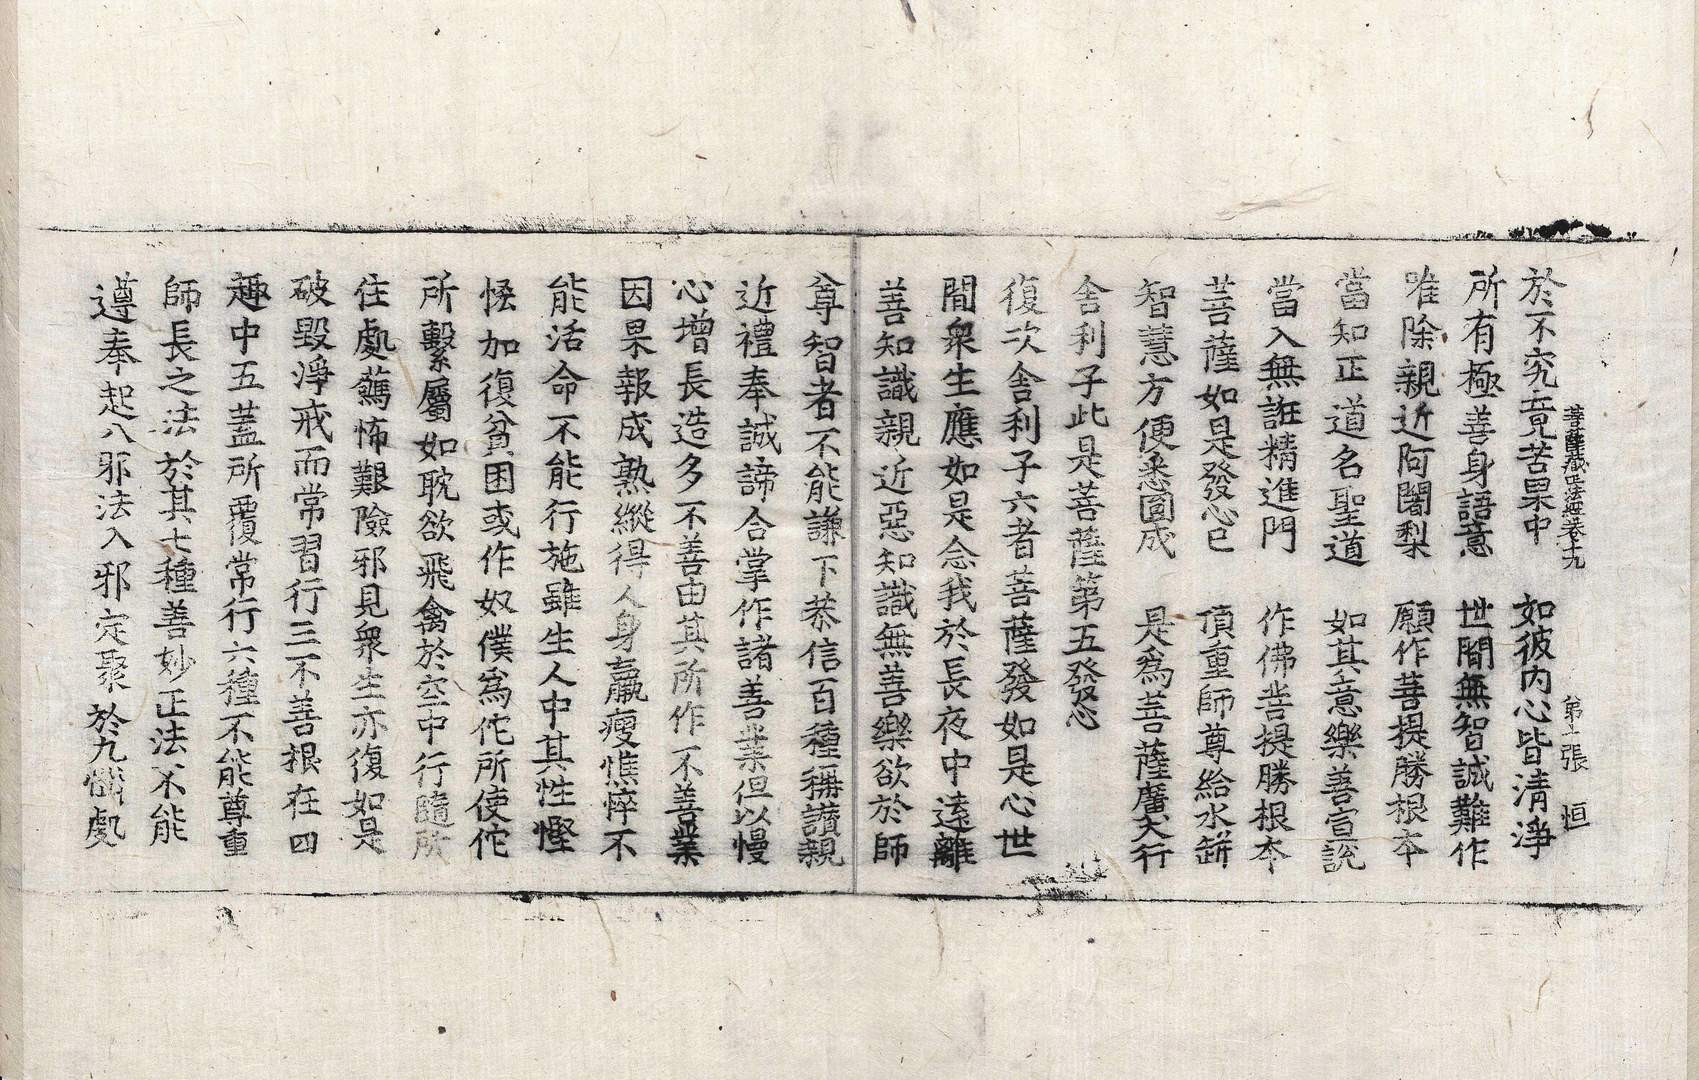 菩薩藏正法經卷十九　第十張　恒
於不究竟苦果中　如彼内心皆清淨
所有極善身語意　世間無智誠難作
唯除親近阿闍梨　願作菩提勝根本
當知正道名聖道　如其意樂善宣說
當入無誑精進門　作佛菩提勝根本
菩薩如是發心已　頂重師尊給水缾
智慧方便悉圓成　是爲菩薩廣大行
舍利子此是菩薩第五發心
復次舍利子六者菩薩發如是心世
間衆生應如是念我於長夜中遠離
善知識親近惡知識無善樂欲於師
尊智者不能謙下恭信百種稱讃親
近禮奉誠諦合掌作諸善業但以慢
心增長造多不善由其所作不善業
因果報成熟縱得人身羸瘦憔悴不
能活命不能行施雖生人中其性慳
悋加復貧困或作奴僕爲佗所使佗
所繫屬如耽欲飛禽於空中行隨所
住處驚怖艱險邪見衆生亦復如是
破毀淨戒而常習行三不善根在四
趣中五蓋所覆常行六種不能尊重
師長之法於其七種善妙正法不能
遵奉起八邪法入邪定聚於九惱處